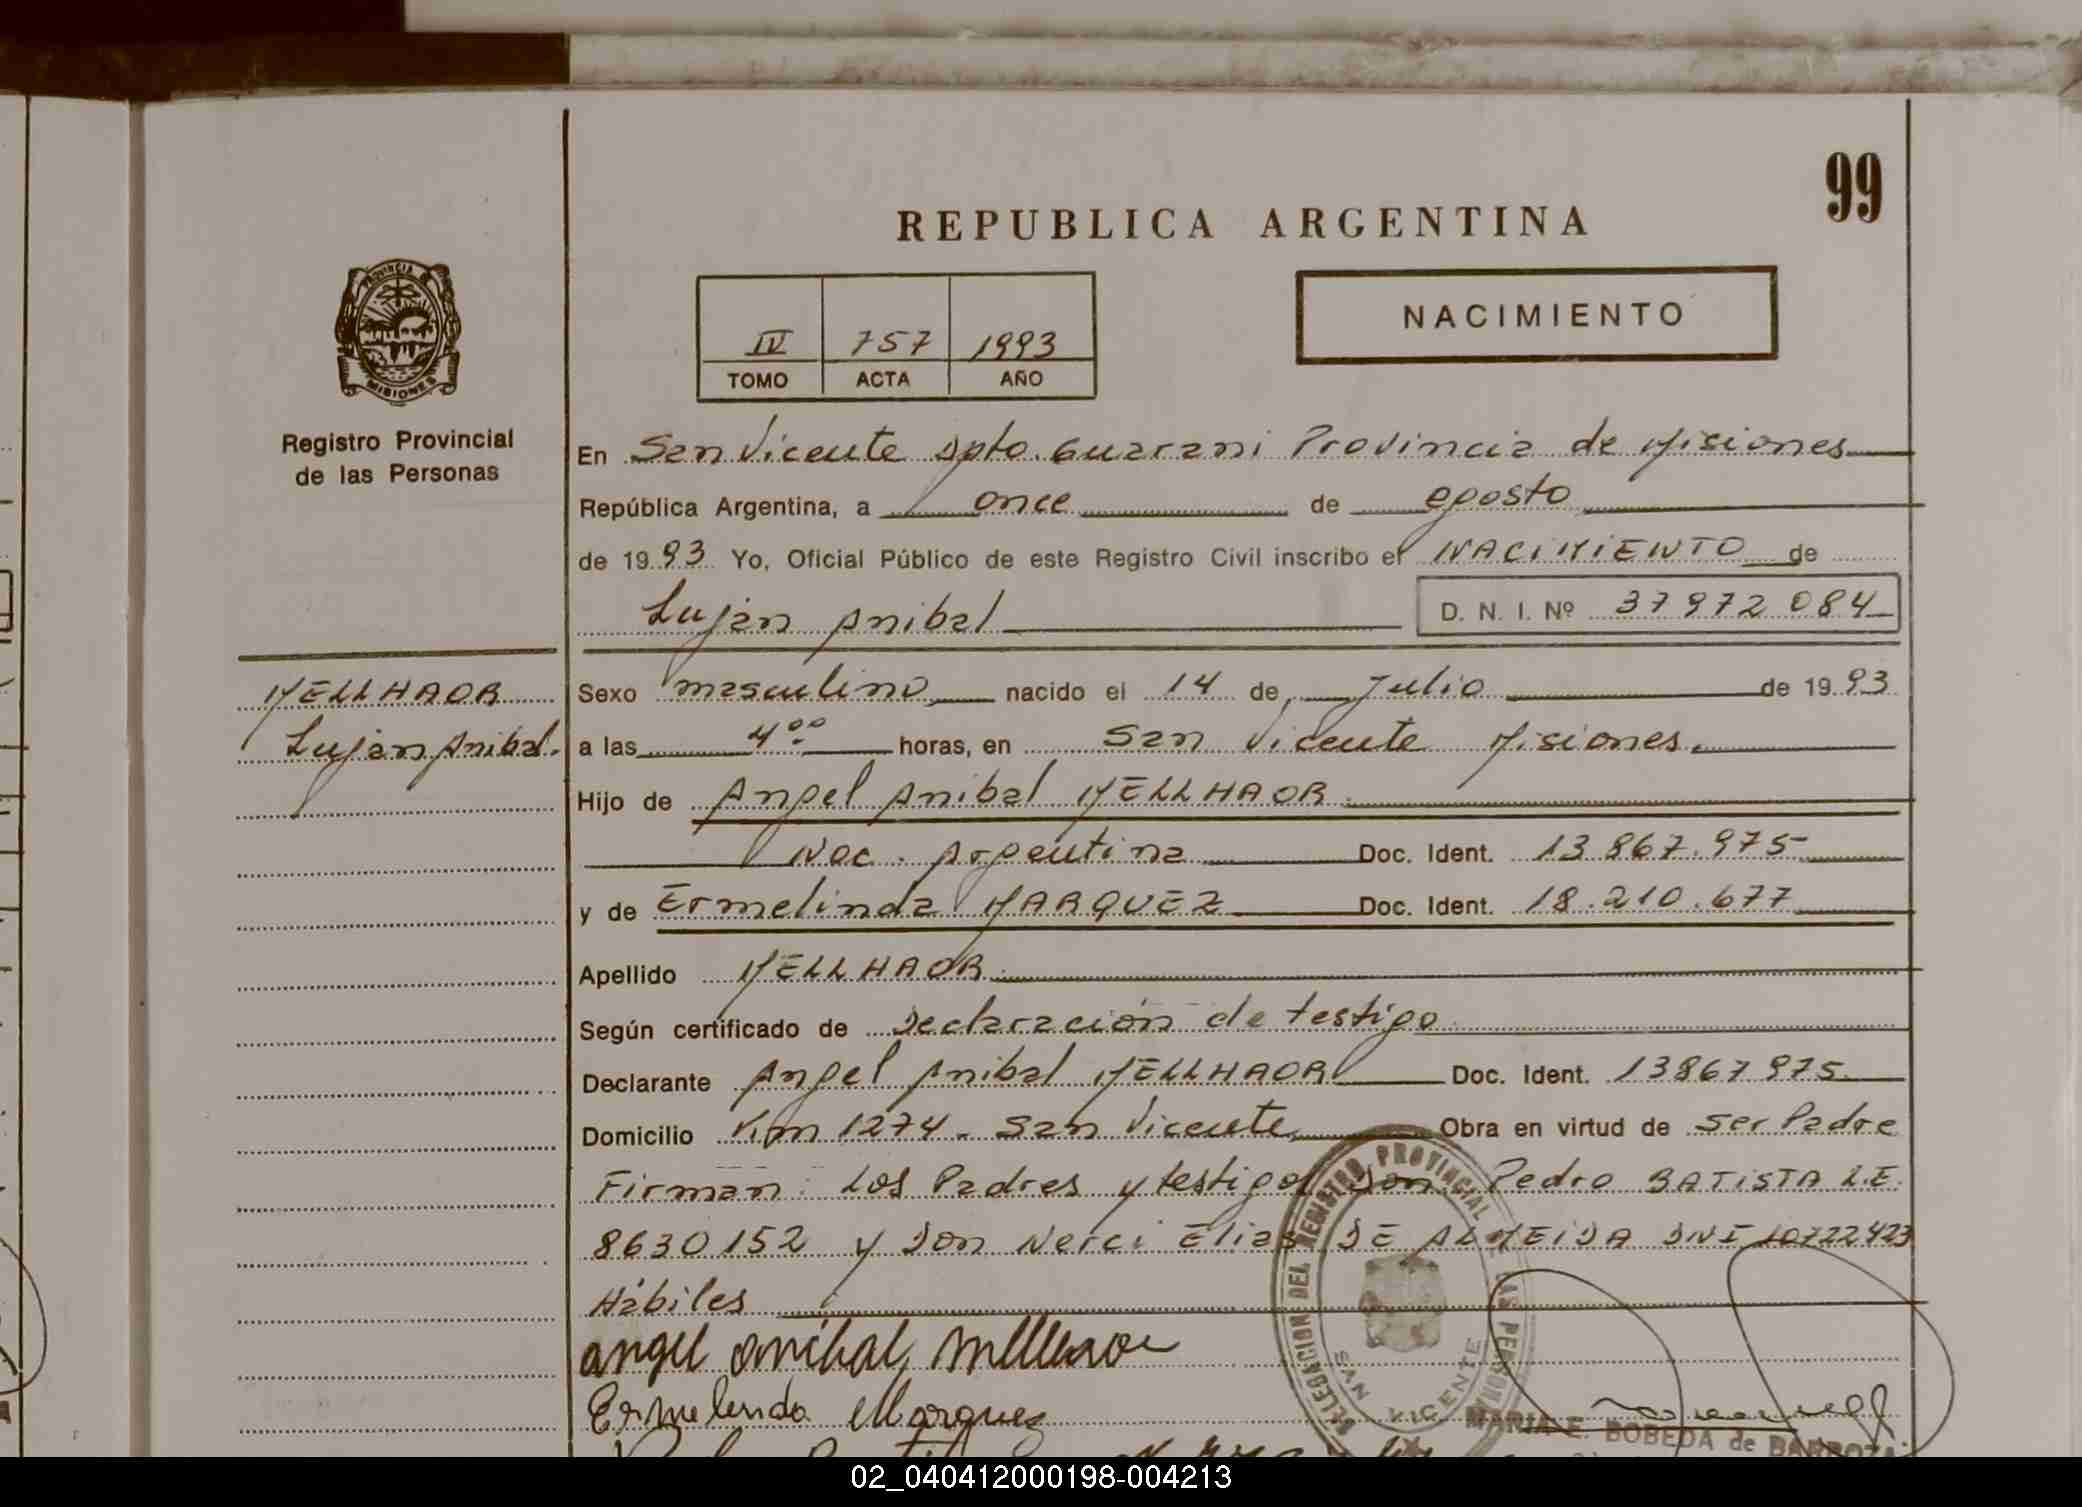 99
REPUBLICA ARGENTINA
PROVINCIA DE
MISIONES
Registro Provincial
de las Personas
IV 757 1993
TOMO ACTA AÑO
NACIMIENTO
En San Vicente Dpto. Guarani Provincia de Misiones
República Argentina, a once de agosto
de 1993 Yo, Oficial Público de este Registro Civil inscribo el NACIMIENTO de
Lujan Anibal D. N. I. Nº 37972084
MELLHAOR
Lujan Anibal.
Sexo masculino nacido el 14 de Julio de 1993
a las 4⁰⁰ horas, en San Vicente Misiones.
Hijo de Angel Anibal MELLHAOR.
Nac. Argentina Doc. Ident. 13.867.975
y de Ermelinda MARQUEZ Doc. Ident. 18.210.677
Apellido MELLHAOR.
Según certificado de Declaración de testigo
Declarante Angel Anibal MELLHAOR Doc. Ident. 13867975
Domicilio Km 1274 - San Vicente Obra en virtud de ser Padre
Firman: Los Padres y testigo Don Pedro BATISTA L.E.
8630152 y Don Nerci Elias DE ALMEIDA DNI 10722423
Hábiles
angel anibal mellhaor
Ermelinda Marquez
DELEGACION DEL REGISTRO PROVINCIAL DE LAS PERSONAS
SAN VICENTE
MARIA E. BOBEDA de BARROZA
02_040412000198-004213